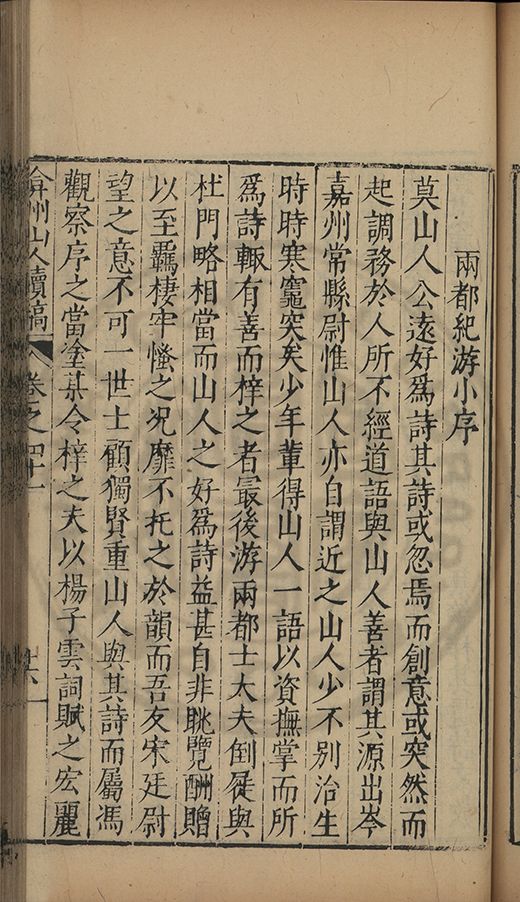 兩都紀游小序
莫山人公遠好爲詩其詩或忽焉而創意或突然而
起調務於人所不經道語與山人善者謂其源出岑
嘉州常縣尉惟山人亦自謂近之山人少不別治生
時時寒竈突矣少年輩得山人一語以資撫掌而所
爲詩輙有善而梓之者最後游兩都士大夫倒屣與
杜門略相當而山人之好爲詩益甚自非眺覽酬贈
以至羇棲牢慅之況靡不托之於韻而吾友宋廷尉
望之意不可一世士顧獨賢重山人與其詩而屬馮
觀察序之當塗某令梓之夫以楊子雲詞賦之宏麗
弇州山人續稿 卷之四十一 十六